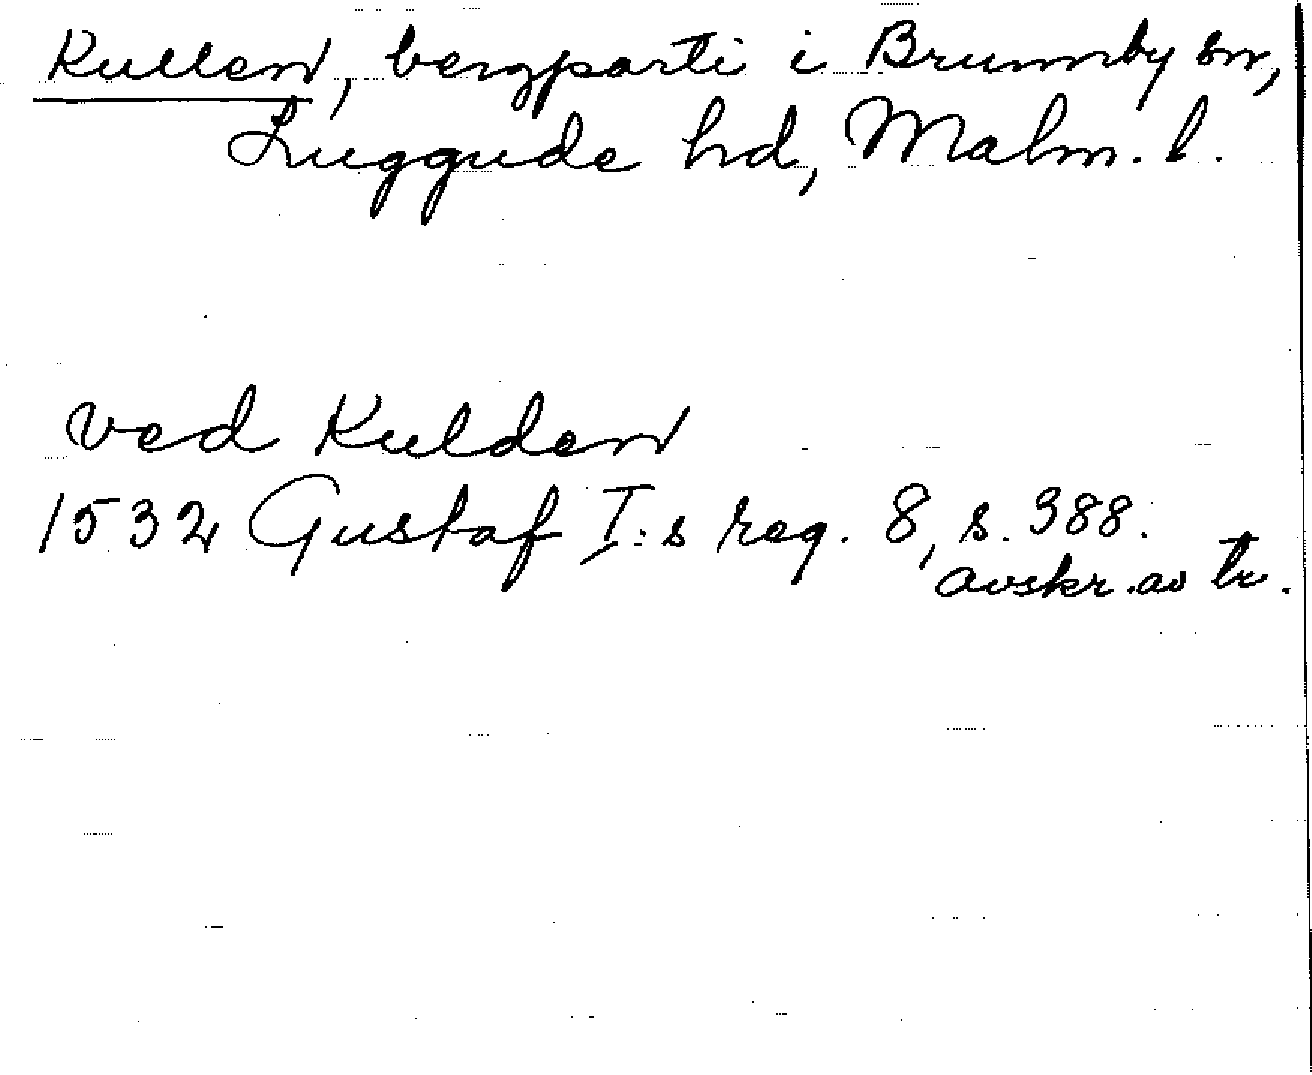 Kullen, bergparti i Brunnby sn,
Luggude hd, Malm. l.
ved Kulden
1532 Gustaf I:s reg. 8, s. 388.
avskr. av tr.